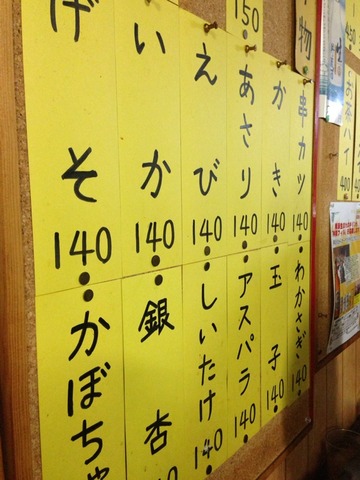 150
物
串カツ
140
かき
140
あさり
140
えび
140
いか
140
げそ
140
わかさぎ
140
玉子
140
アスパラ
140
しいたけ
140
銀杏
かぼちゃ
450
400
400